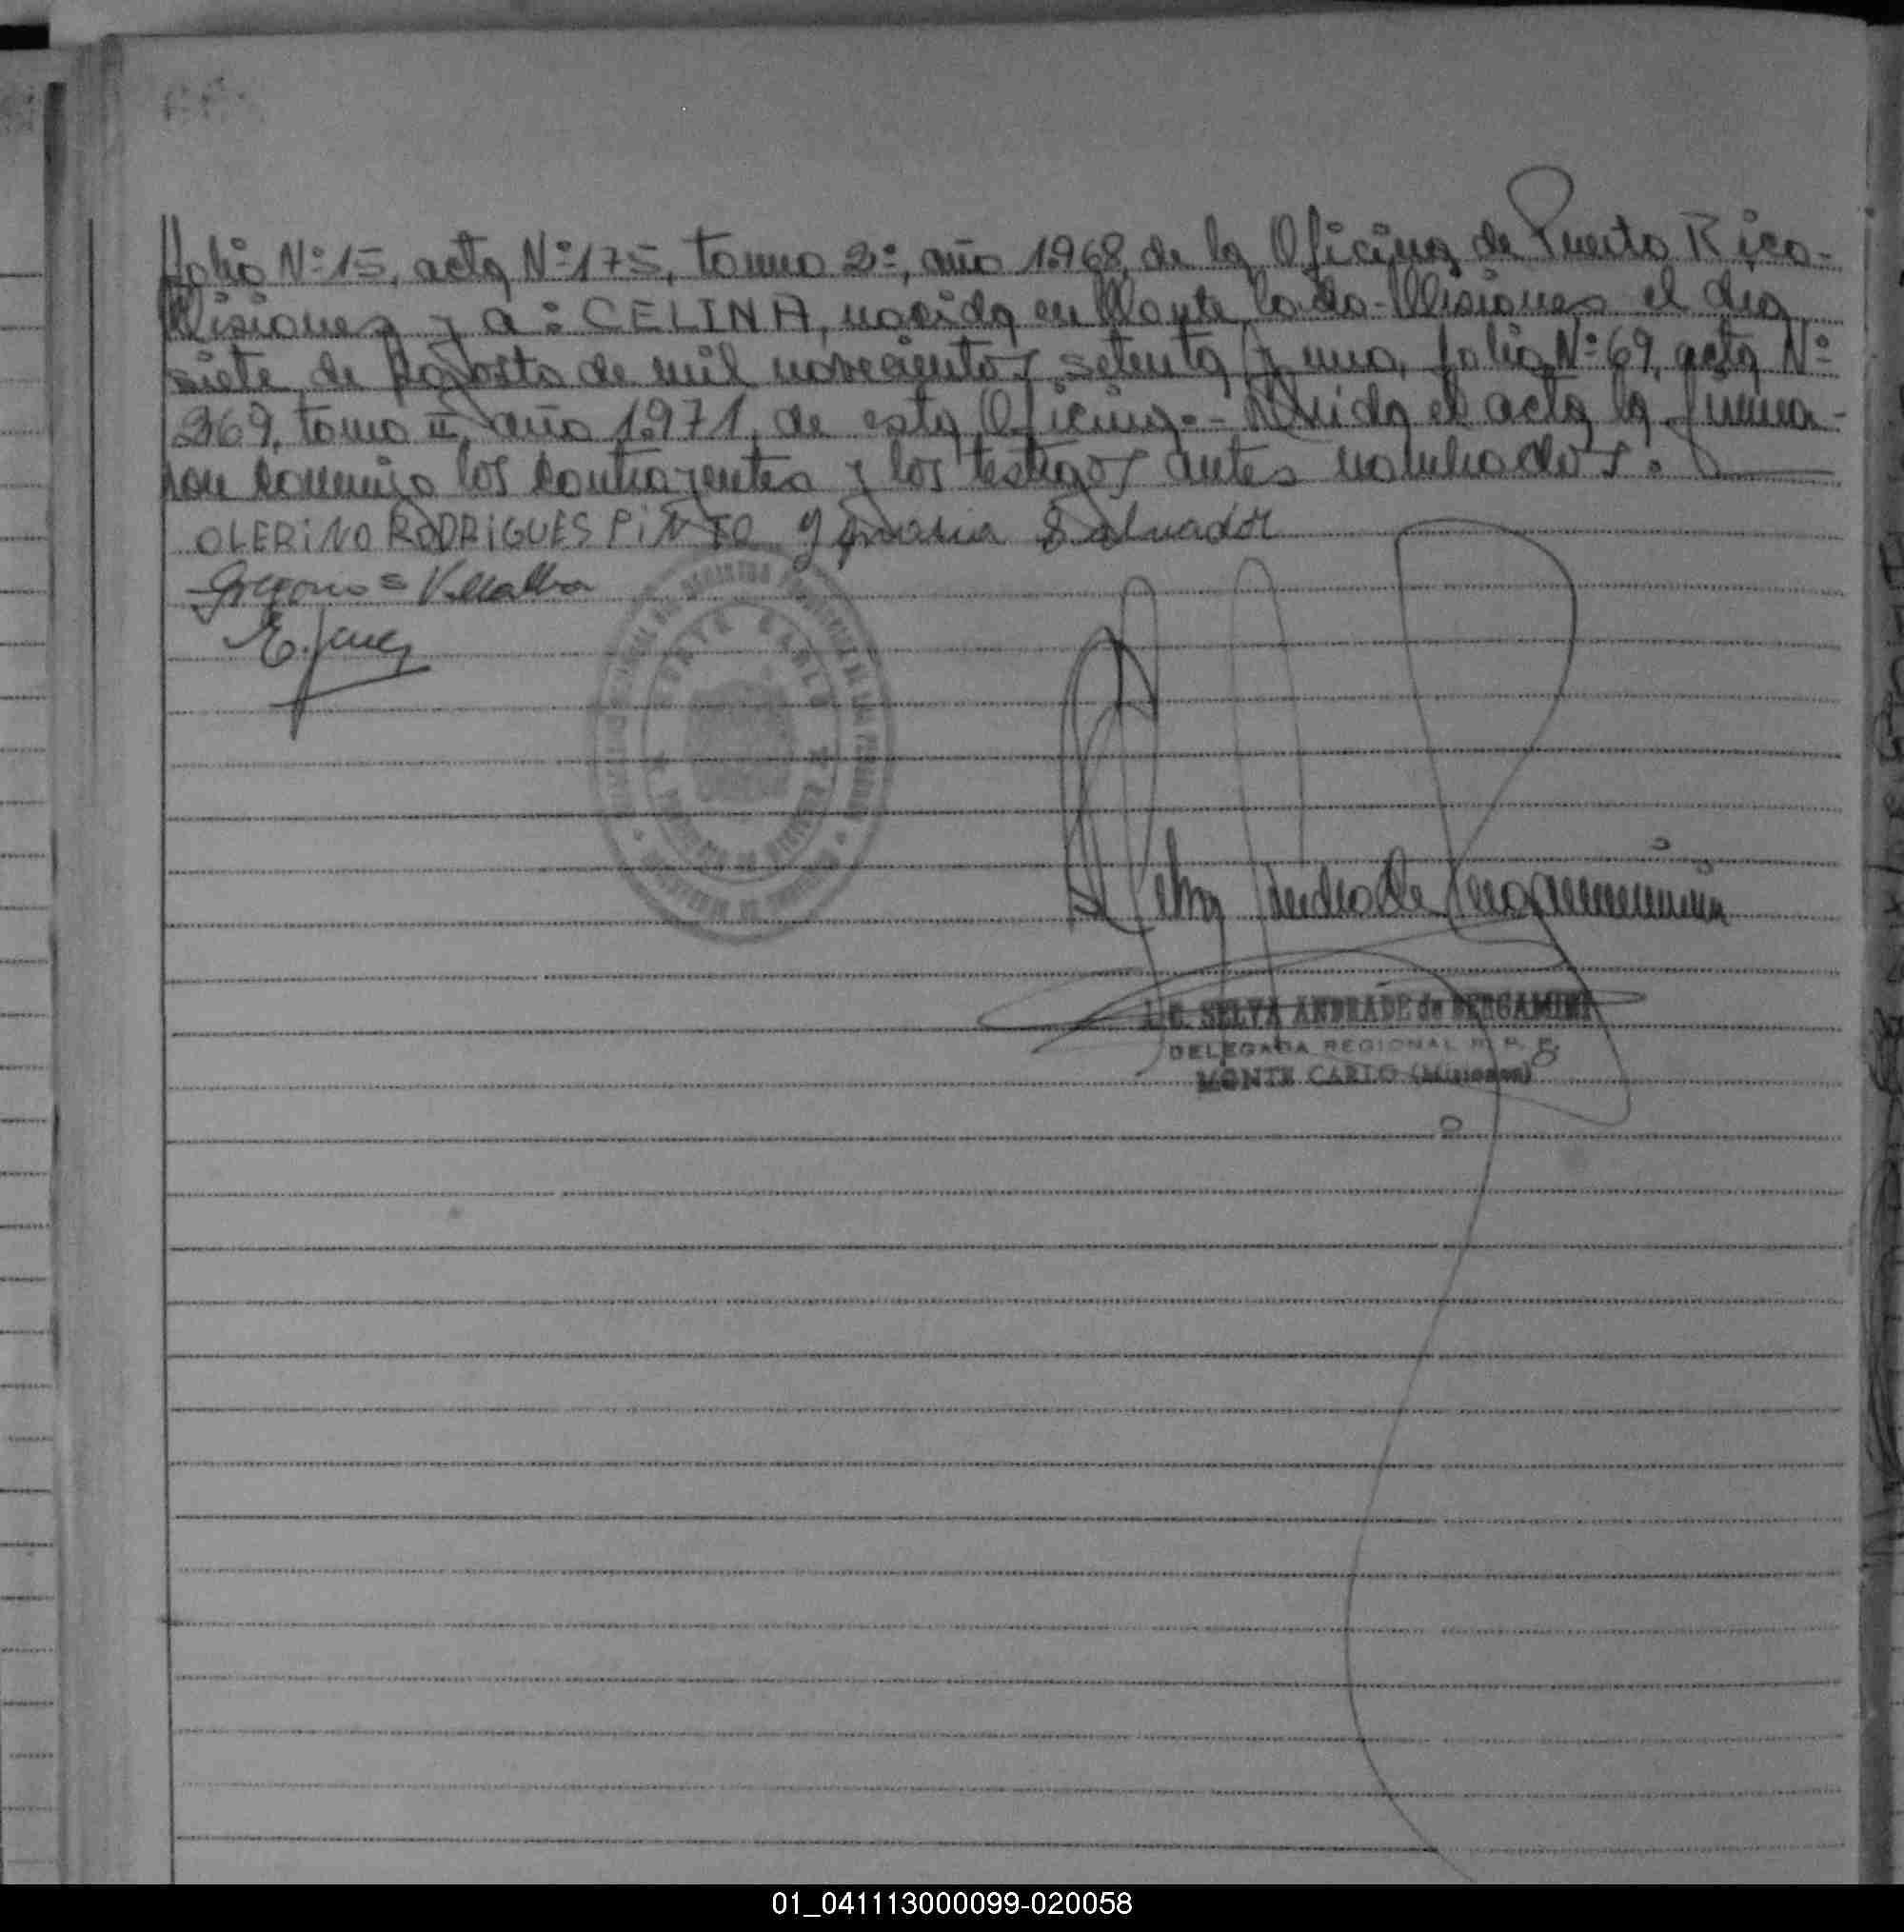 folio Nº 15, acta Nº 175, tomo 2º, año 1.968, de la Oficina de Puerto Rico-
Misiones y a: CELINA, nacida en Monte Carlo-Misiones el día
siete de Agosto de mil novecientos setenta y uno, folio Nº 69, acta Nº
369, tomo II, año 1.971, de esta Oficina.- Leida el acta la firma-
ron conmigo los contrayentes y los testigos antes nombrados.
OLERINO RODRIGUES PINTO y Maria Salvador
Gregorio Villalba
MONTE CARLO
Selva Andrade de Bergamini
SELVA ANDRADE de BERGAMINI
DELEGADA REGIONAL R. P. P.
MONTE CARLO (Misiones)
01_041113000099-020058